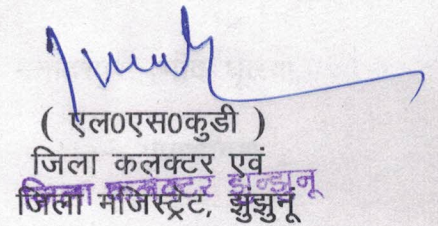 ( एल0एस0कुडी )
जिला कलक्टर एवं
जिला कलक्टर झुन्झुनू
जिला मजिस्ट्रेट, झुंझुनूं